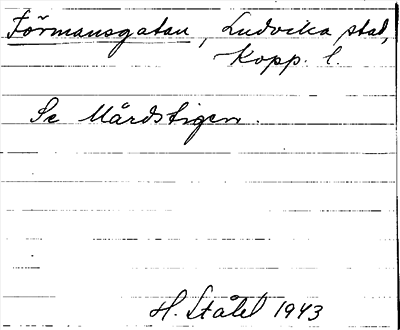 Förmansgatan, Ludvika stad,
Kopp. l.
Se Mårdstigen.
H. Ståhl 1943